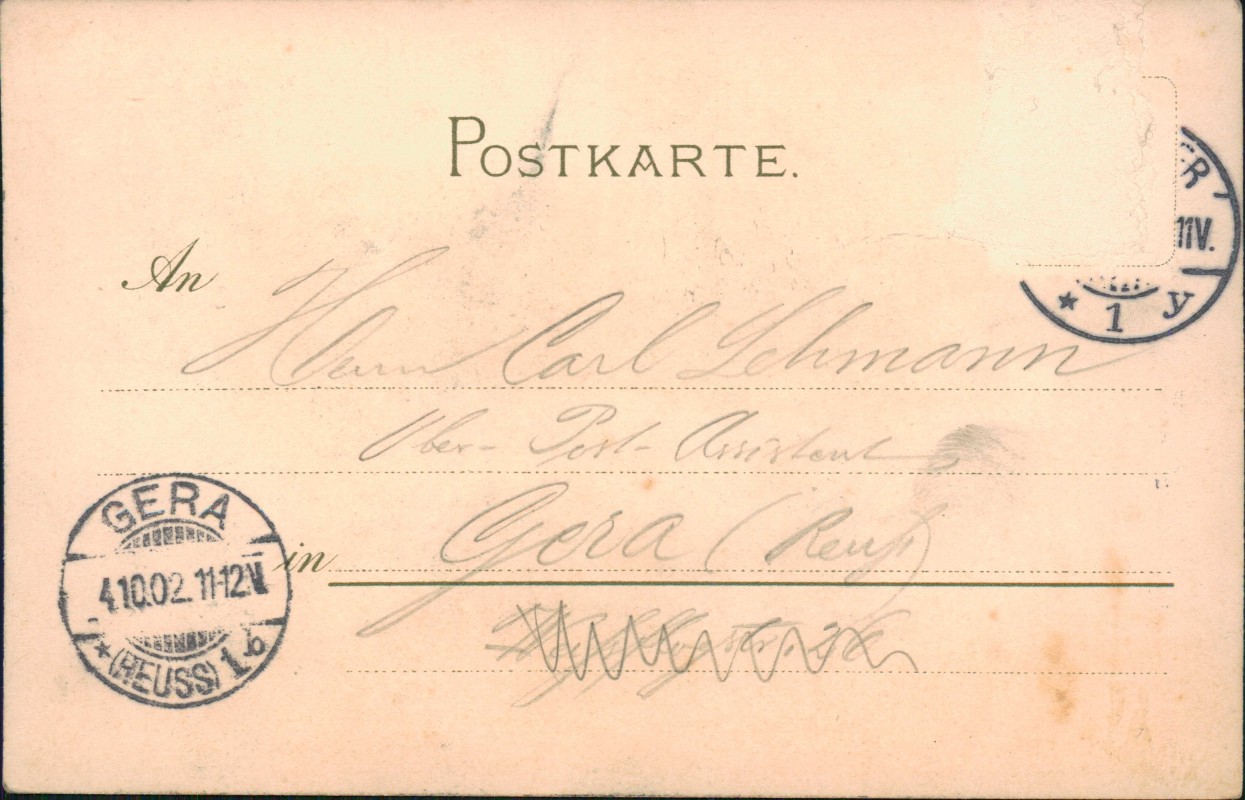 POSTKARTE.
ER
11V.
* 1 y
An Herrn Carl Lehmann
Ober-Post-Assistent
GERA
4.10.02. 11-12V.
* (REUSS) 1 b
in Gera (Reuß)